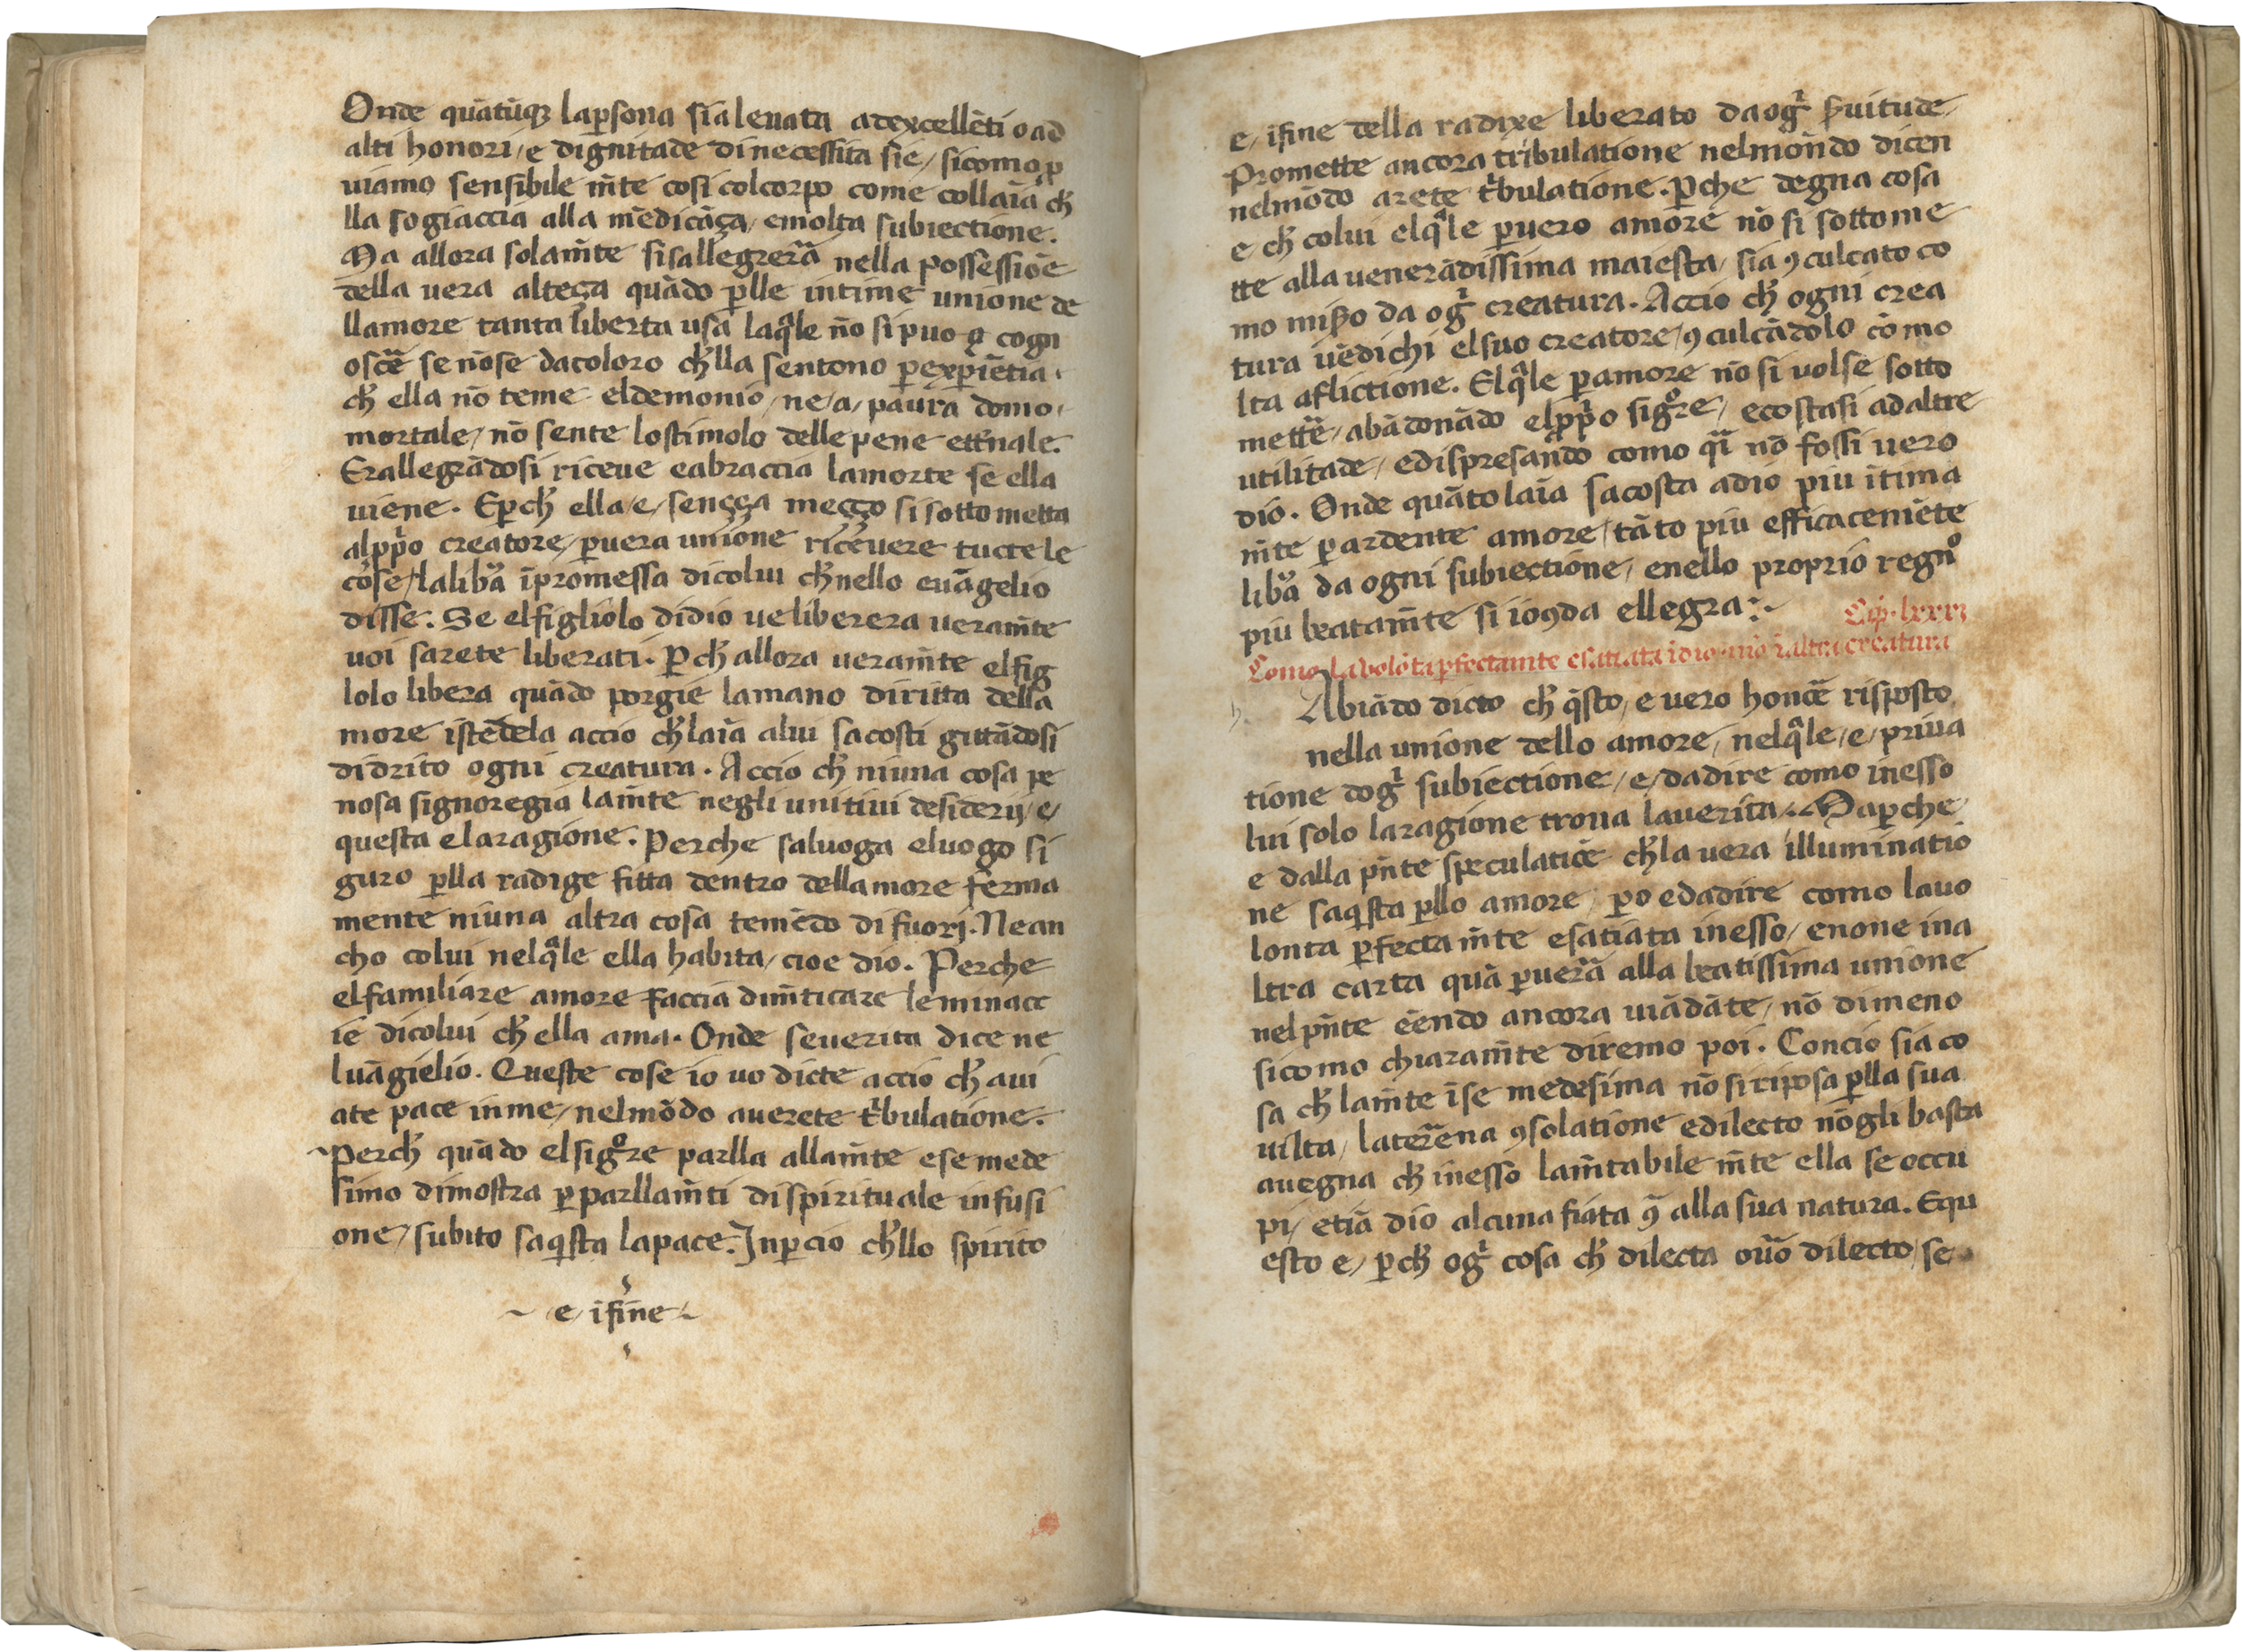 Onde quātūqꝫ laꝑsona sia leuata adexcellēti o ad
alti honori / e dignitade di necessita sie / sicomo ꝓ
uiamo sensibile m̄te cosi colcorpo come collaīa cħ
lla sogiaccia alla mēdicāça / emolta subiectione.
Ma allora solam̄te sisallegrerā nella possessiōe
della uera alteça quādo ꝑlle intime unione de
llamore tanta liberta usa laqͣle no si puo cogn
oscē se nōse dacoloro cħlla sentono ꝑexꝑiētia.
cħ ella nō teme eldemonio / ne / a / paura domo
mortale / nō sente lostimolo delle pene etnale.
Erallegrādosi riceue eabraccia lamorte se ella
uiene. Eꝑcħ ella / e / sençça meçço si sottometta
alpp̄o creatore / ꝑuera unione riceuere tuctele
cose / laliba īpromessa dicolui cħ nello euāgelio
disse: Se elfigliolo didio ue liberera ueram̄te
uoi sarete liberati. Pcħ allora ueram̄te elfig
lolo libera quādo porgie lamano diritta della
more istēdela accio cħ laīa alui sacosti gittādosi
didrito ogni creatura. Accio cħ niuna cosa pe
nosa signoregia lam̄te negli unitiui desiderij / e /
questa e laragione. Perche saluoga eluogo si
guro ꝑlla radige fitta dentro dellamore ferma
mente niuna altra cosa temēdo di fuori. Nean
cho colui nelqͣle ella habita / cioe dio. Perche
elfamiliare amore faccia dim̄ticare leminacc
ie dicolui cħ ella ama. Onde seuerita dice ne
luāgielio. Queste cose io uo dicte accio cħ aui
ate pace inme / nelmōdo auerete tͥbulatione.
Percħ quādo elsigᵒre parlla allam̄te ese mede
simo dimostra ꝑ parllam̄ti dispirituale infusi
one / subito saqͥsta lapace. Inꝑcio cħllo spirito
e / ifine
e / ifine della radixe liberato da ogͥ ẜuitude
Promette ancora tribulatione nelmōndo dicen
nelmōdo arete tͥbulatione. Pche degna cosa
e cħ colui elqͣle ꝑuero amore nō si sottome
tte alla uenerādissima maiesta / sia ꝯculcato co
mo miẜo da ogͥ creatura. Accio cħ ogni crea
tura uēdichi elsuo creatore / ꝯculcādolo cō mo
lta aflictione. Elqͣle ꝑamore nō si uolse sotto
mettē / abādonādo elpp̄o sigᵒre / ecostasi adaltre
utilitade / edispresando como qͥ nō fossi uero
dio. Onde quāto laīa sacosta adio piu ītima
m̄te ꝑardente amore / tāto piu efficacemēte
liba da ogni subiectione / enello proprio regno
piu beatam̄te si ioꝯda ellegra:
Como la uolōta ꝑfectam̄te esatiata ī dio / nō ī altra creatura
Abiādo dicto cħ qͥsto / e uero honcē risposto
nella unione dello amore / nelqͣle / e / priua
tione dogͥ subiectione / e / dadire como inesso
lui solo laragione troua lauerita. Maꝑche
e dalla pn̄te speculatiōe cħ la uera illuminatio
ne saqͥsta ꝑllo amore / ꝑo edadire como lauo
lonta ꝑfecta m̄te esatiata inesso / enone ina
ltra carta quā ꝑuerā alla beatissima unione
nel pn̄te ēendo ancora uiādāte / nō dimeno
sicomo chiaram̄te diremo poi. Concio sia co
sa cħ lam̄te īse medesima nō si riposa ꝑlla sua
uilta / laterrena ꝯsolatione edilecto nōgli basta
auegna cħ inesso lam̄tabile m̄te ella se occu
pi / etiā dio alcuna fiata ꝯͣ alla sua natura. Equ
esto e / ꝑcħ ogͥ cosa cħ dilecta ouō dilecto / se